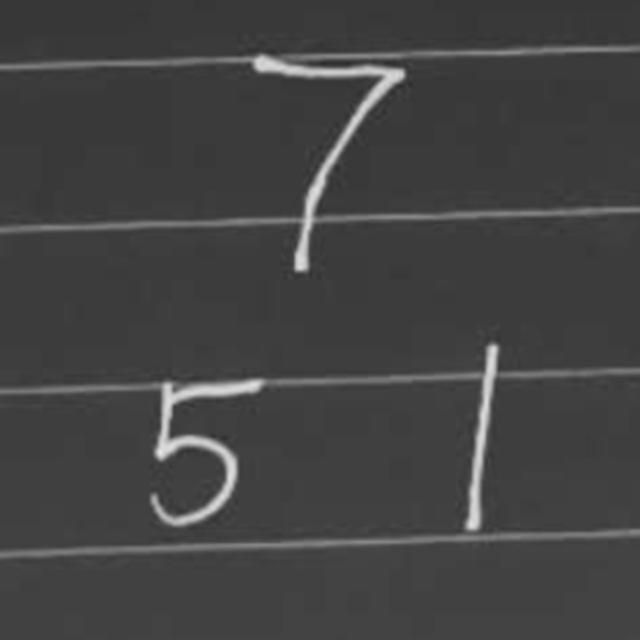 7
5 1